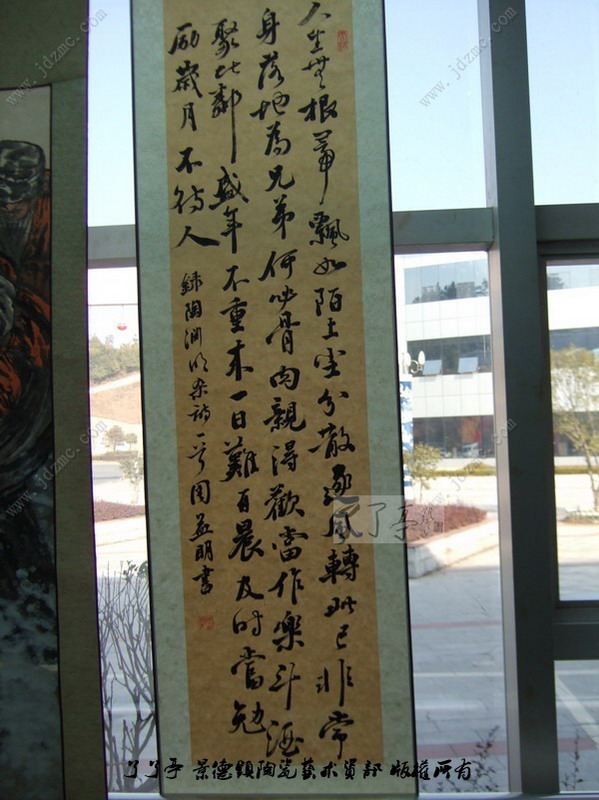 人生無根蒂飄如陌上塵分散逐風轉此已非常
身落地為兄弟何必骨肉親得歡當作樂斗酒
聚比鄰盛年不重来一日難再晨及時當勉
励歲月不待人
録陶渊明杂詩一首周益明書
了了亭
www.jdzmc.com
www.jdzmc.com
www.jdzmc.com
www.jdzmc.com
www.jdzmc.com
了了亭 景德鎮陶瓷藝术資部 版權所有